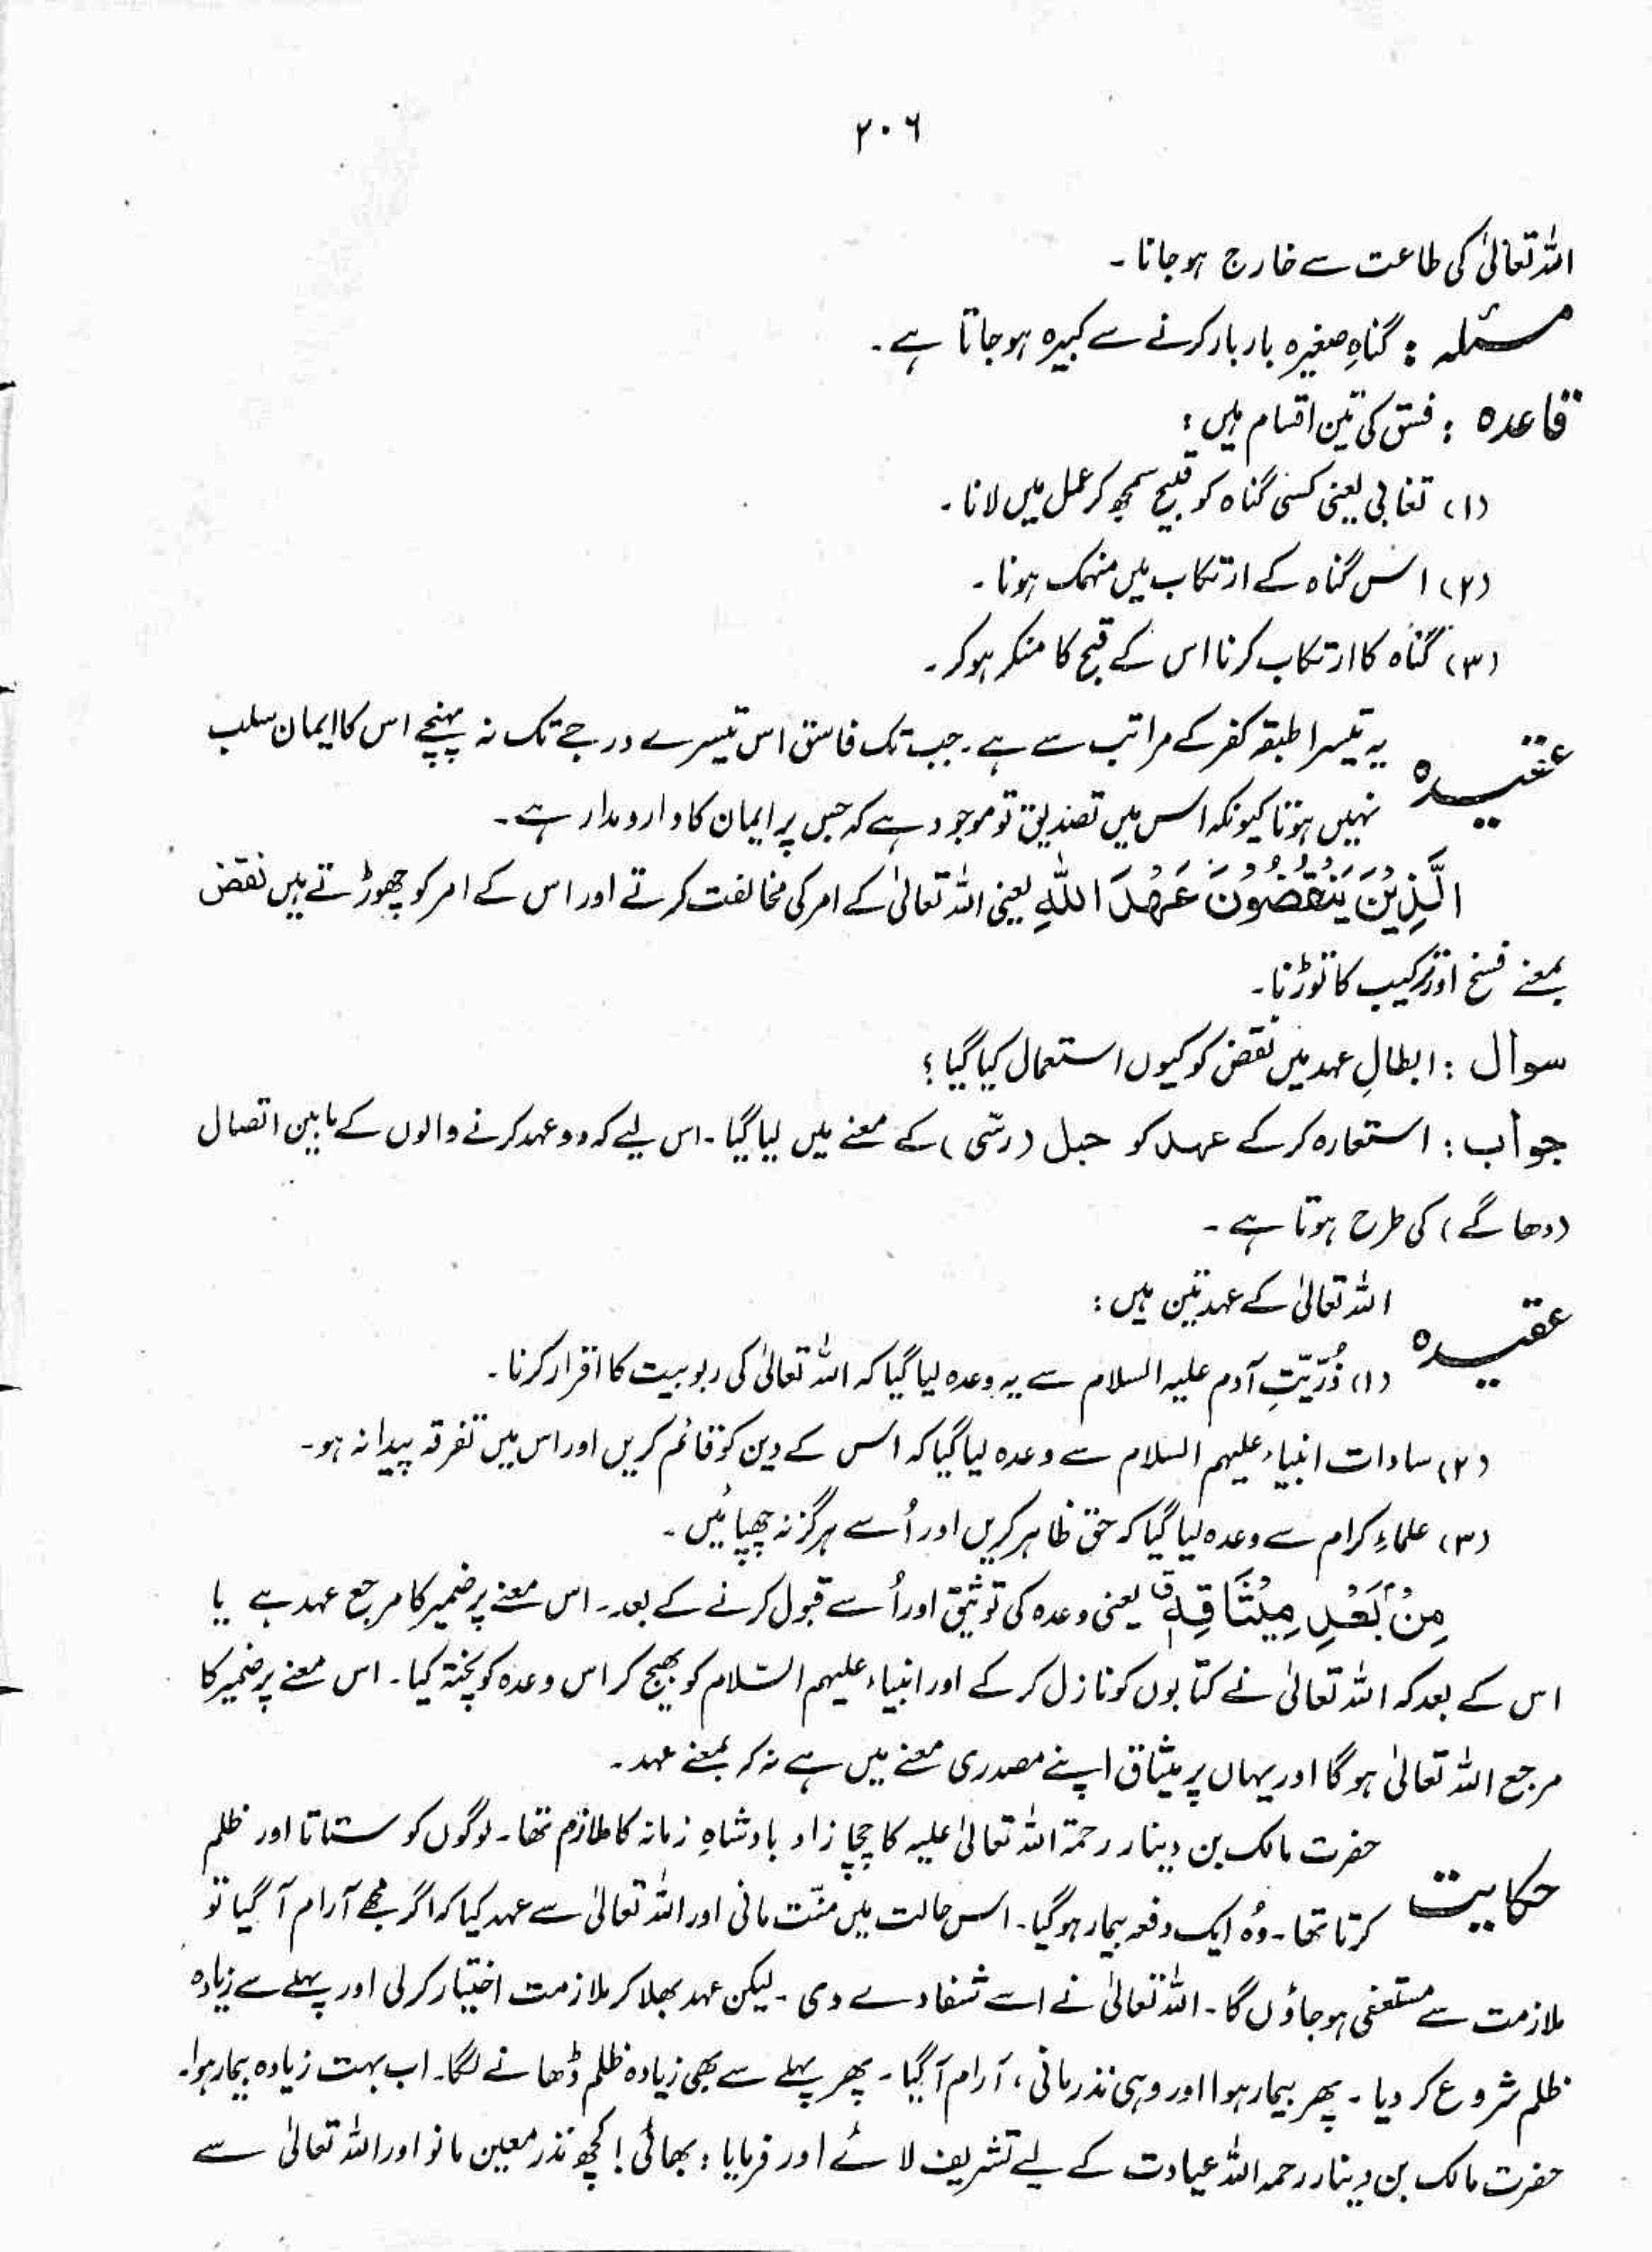 ۲۰۶
اللہ تعالیٰ کی طاعت سے خارج ہو جانا ۔
مسئلہ : گناہِ صغیرہ بار بار کرنے سے کبیرہ ہو جاتا ہے ۔
قاعدہ : فسق کی تین اقسام ہیں :
(۱) تغابی یعنی کسی گناہ کو قبیح سمجھ کر عمل میں لانا ۔
(۲) اس گناہ کے ارتکاب میں منہمک ہونا ۔
(۳) گناہ کا ارتکاب کرنا اس کے قبح کا منکر ہو کر ۔
عقیدہ یہ تیسرا طبقہ کفر کے مراتب سے ہے ۔ جب تک فاسق اس تیسرے درجے تک نہ پہنچے اس کا ایمان سلب
نہیں ہوتا کیونکہ اس میں تصدیق تو موجود ہے کہ جس پر ایمان کا دار و مدار ہے ۔
الَّذِیْنَ یَنْقُضُوْنَ عَھْدَ اللّٰہِ یعنی اللہ تعالیٰ کے امر کی مخالفت کرتے اور اس کے امر کو چھوڑتے ہیں نقض
بمعنے فسخ اور ترکیب کا توڑنا ۔
سوال : ابطالِ عہد میں نقض کو کیوں استعمال کیا گیا ؟
جواب : استعارہ کر کے عہد کو حبل (رسّی) کے معنے میں لیا گیا ۔ اس لیے کہ دو عہد کرنے والوں کے مابین اتصال
(دھاگے) کی طرح ہوتا ہے ۔
عقیدہ اللہ تعالیٰ کے عہد تین ہیں :
(۱) ذُرّیّتِ آدم علیہ السلام سے یہ وعدہ لیا گیا کہ اللہ تعالیٰ کی ربوبیت کا اقرار کرنا ۔
(۲) سادات انبیاء علیہم السلام سے وعدہ لیا گیا کہ اس کے دین کو قائم کریں اور اس میں تفرقہ پیدا نہ ہو ۔
(۳) علماءِ کرام سے وعدہ لیا گیا کہ حق ظاہر کریں اور اُسے ہرگز نہ چھپائیں ۔
مِنْۢ بَعْدِ مِیْثَاقِہٖ یعنی وعدہ کی توثیق اور اُسے قبول کرنے کے بعد ۔ اس معنے پر ضمیر کا مرجع عہد ہے یا
اس کے بعد کہ اللہ تعالیٰ نے کتابوں کو نازل کر کے اور انبیاء علیہم السّلام کو بھیج کر اس وعدہ کو پختہ کیا ۔ اس معنے پر ضمیر کا
مرجع اللہ تعالیٰ ہو گا اور یہاں پر میثاق اپنے مصدری معنے میں ہے نہ کہ بمعنے عہد ۔
حکایت حضرت مالک بن دینار رحمۃ اللہ تعالیٰ علیہ کا چچا زاد بادشاہِ زمانہ کا ملازم تھا ۔ لوگوں کو ستاتا اور ظلم
کرتا تھا ۔ وُہ ایک دفعہ بیمار ہو گیا ۔ اس حالت میں منّت مانی اور اللہ تعالیٰ سے عہد کیا کہ اگر مجھے آرام آ گیا تو
ملازمت سے مستعفی ہو جاؤں گا ۔ اللہ تعالیٰ نے اسے شفا دے دی ۔ لیکن عہد بھلا کر ملازمت اختیار کر لی اور پہلے سے زیادہ
ظلم شروع کر دیا ۔ پھر بیمار ہوا اور وہی نذر مانی ، آرام آ گیا ۔ پھر پہلے سے بھی زیادہ ظلم ڈھانے لگا ۔ اب بہت زیادہ بیمار ہوا۔
حضرت مالک بن دینار رحمہ اللہ عیادت کے لیے تشریف لائے اور فرمایا : بھائی ! کچھ نذر معین مانو اور اللہ تعالیٰ سے